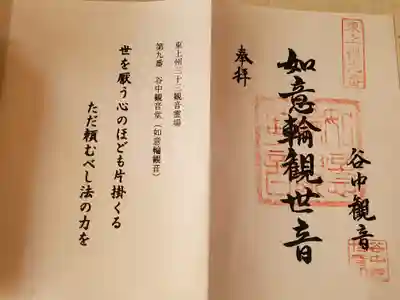 奉拝
如意輪観世音
谷中観音
東上州三十三観音霊場
第九番 谷中観音堂(如意輪観音)
世を厭う心のほども片掛くる
ただ頼むべし法の力を